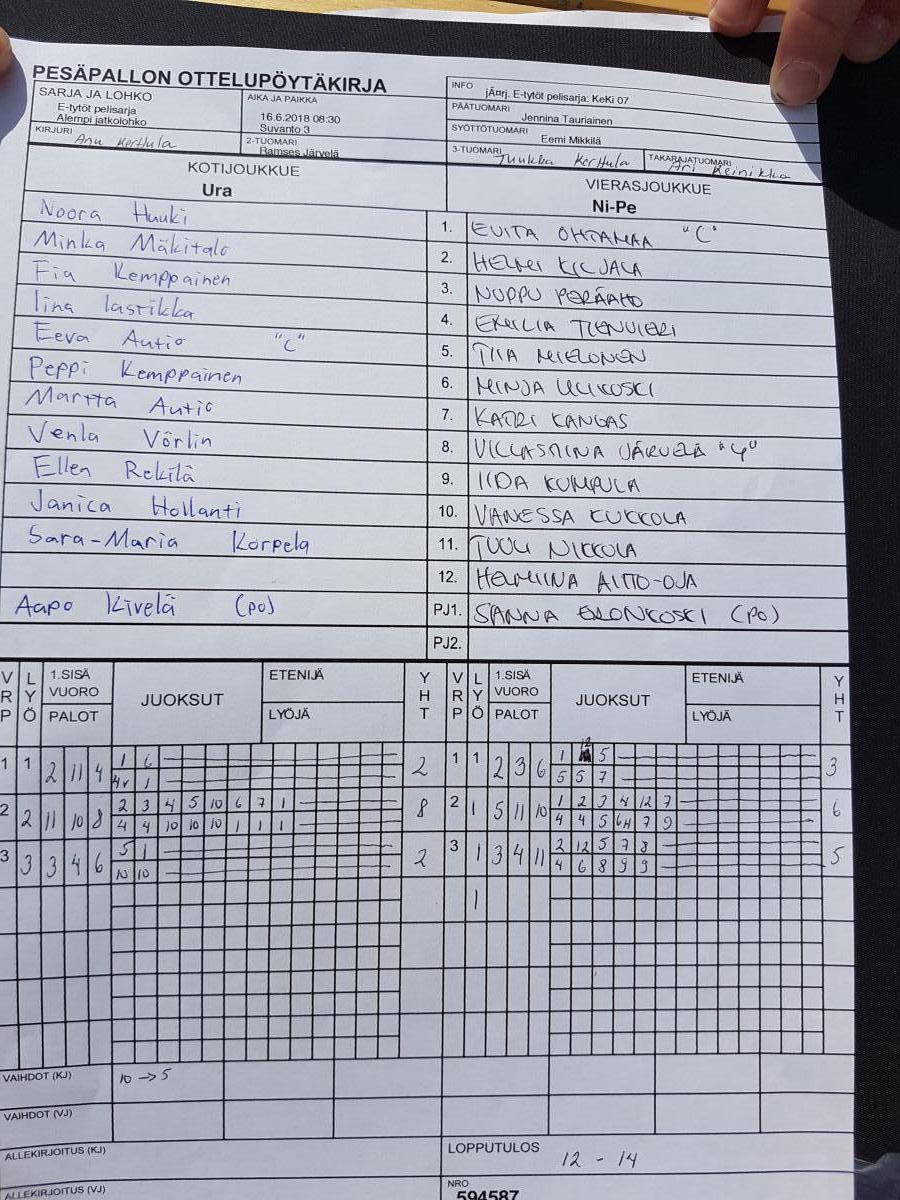 PESÄPALLON OTTELUPÖYTÄKIRJA
SARJA JA LOHKO
E-tytöt pelisarja
Alempi jatkolohko
AIKA JA PAIKKA
16.6.2018 08:30
Suvanto 3
KIRJURI
Anu Kerttula
2-TUOMARI
Ramses Järvelä
INFO
jÄrj. E-tytöt pelisarja: KeKi 07
PÄÄTUOMARI
Jennina Tauriainen
SYÖTTÖTUOMARI
Eemi Mikkilä
3-TUOMARI
Tuukka Kerttula
TAKARAJATUOMARI
Ari Keinikka
KOTIJOUKKUE
Ura
VIERASJOUKKUE
Ni-Pe
Noora Huuki 1. EVITA OHTAMAA "C"
Minka Mäkitalo 2. HELMI KILJALA
Fia Kemppainen 3. NUPPU PERÄAHO
Iina Lastikka 4. EMILIA TIENVIERI
Eeva Autio "C" 5. TIIA MIELONEN
Peppi Kemppainen 6. MINJA ULIKOSKI
Martta Autio 7. KATRI KANGAS
Venla Vörlin 8. VILLASTIINA JÄRVELÄ "4"
Ellen Rekilä 9. IIDA KUMPULA
Janica Hollanti 10. VANESSA KUKKOLA
Sara-Maria Korpela 11. TUULI NIKKOLA
12. HELMIINA AITTO-OJA
Aapo Kivelä (po) PJ1. SANNA (PO)
PJ2.
VRP LYÖ 1.SISÄ VUORO PALOT JUOKSUT ETENIJÄ LYÖJÄ YHT VRP LYÖ 1.SISÄ VUORO PALOT JUOKSUT ETENIJÄ LYÖJÄ YHT
1 1 2 11 4 1 6 2 1 1 2 3 6 1 12 5 3
4v 1 5 5 7
2 2 11 10 8 2 3 4 5 10 6 7 1 8 2 1 5 11 10 1 2 3 4 12 7 6
4 4 10 10 10 1 1 1 4 4 5 6H 7 9
3 3 3 4 6 5 1 2 3 1 3 4 11 2 12 5 7 8 5
10 10 4 6 8 9 9
1
VAIHDOT (KJ) 10 → 5
VAIHDOT (VJ)
ALLEKIRJOITUS (KJ)
LOPPUTULOS
12 - 14
ALLEKIRJOITUS (VJ)
NRO
594587